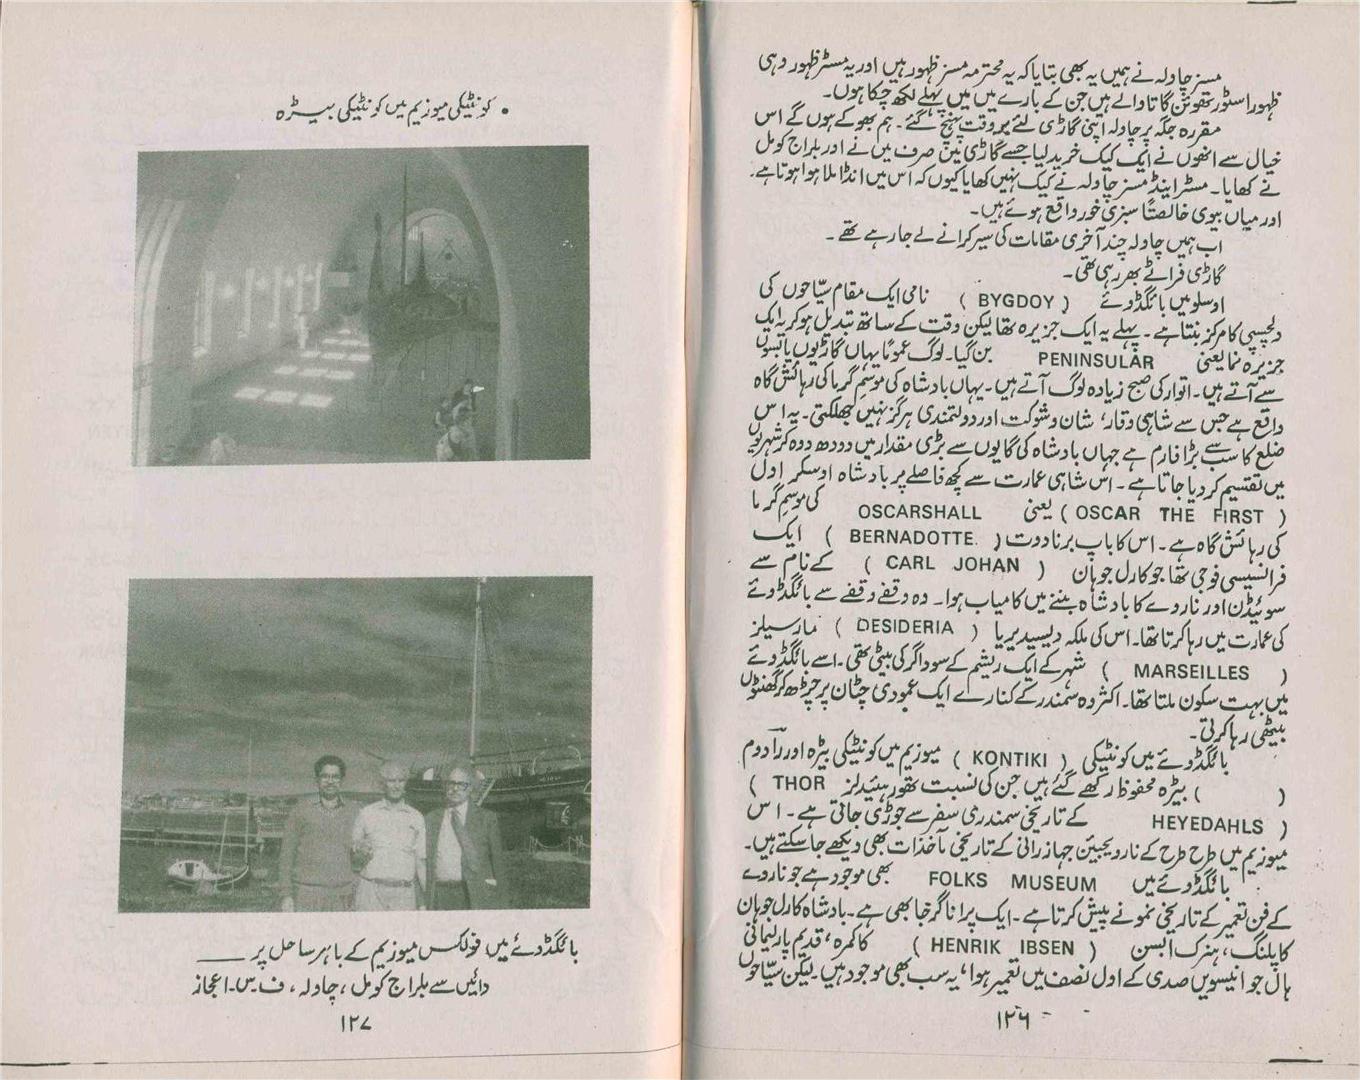 مسز چاولہ نے ہمیں یہ بھی بتایا کہ یہ محترمہ مسز ظہور ہیں اور یہ مسٹر ظہور وہی
ظہور اسٹور تھوئن گاتا والے ہیں جن کے بارے میں میں پہلے لکھ چکا ہوں۔
مقررہ جگہ پر چاولہ اپنی گاڑی لئے بروقت پہنچ گئے۔ ہم بھوکے ہوں گے اس
خیال سے انھوں نے ایک کیک خرید لیا جسے گاڑی میں صرف میں نے اور بلراج کومل
نے کھایا۔ مسٹر اینڈ مسز چاولہ نے کیک نہیں کھایا کیوں کہ اس میں انڈا ملا ہوا ہوتا ہے۔
اور میاں بیوی خالصتاً سبزی خور واقع ہوئے ہیں۔
اب ہمیں چاولہ چند آخری مقامات کی سیر کرانے لے جا رہے تھے۔
گاڑی فراٹے بھر رہی تھی۔
اوسلو میں بائگڈوئے (BYGDOY) نامی ایک مقام سیّاحوں کی
دلچسپی کا مرکز بنتا ہے۔ پہلے یہ ایک جزیرہ تھا لیکن وقت کے ساتھ تبدیل ہو کر یہ ایک
جزیرہ نما یعنی PENINSULAR بن گیا۔ لوگ عموماً یہاں گاڑیوں یا بسوں
سے آتے ہیں۔ اتوار کی صبح زیادہ لوگ آتے ہیں۔ یہاں بادشاہ کی موسمِ گرما کی رہائش گاہ
واقع ہے جس سے شاہی وقار، شان و شوکت اور دولتمندی ہرگز نہیں جھلکتی۔ یہ اس
ضلع کا سب سے بڑا فارم ہے جہاں بادشاہ کی گایوں سے بڑی مقدار میں دودھ دوہ کر شہریوں
میں تقسیم کر دیا جاتا ہے۔ اس شاہی عمارت سے کچھ فاصلے پر بادشاہ اوسکر اول
(OSCAR THE FIRST) یعنی OSCARSHALL کی موسمِ گرما
کی رہائش گاہ ہے۔ اس کا باپ برنادوت (BERNADOTTE) ایک
فرانسیسی فوجی تھا جو کارل جوہان (CARL JOHAN) کے نام سے
سوئیڈن اور ناروے کا بادشاہ بننے میں کامیاب ہوا۔ وہ وقفے وقفے سے بائگڈوئے
کی عمارت میں رہا کرتا تھا۔ اس کی ملکہ دیسیدیریا (DESIDERIA) مارسیلز
(MARSEILLES) شہر کے ایک ریشم کے سوداگر کی بیٹی تھی۔ اسے بائگڈوئے
میں بہت سکون ملتا تھا۔ اکثر وہ سمندر کے کنارے ایک عمودی چٹان پر چڑھ کر گھنٹوں
بیٹھی رہا کرتی۔
بائگڈوئے میں کونٹیکی (KONTIKI) میوزیم میں کونٹیکی بیڑہ اور رآ دوم
( ) بیڑہ محفوظ رکھے گئے ہیں جن کی نسبت تھور ہئیدلز (THOR
HEYEDAHLS) کے تاریخی سمندری سفر سے جوڑی جاتی ہے۔ اس
میوزیم میں طرح طرح کے نارویجیئن جہاز رانی کے تاریخی مآخذات بھی دیکھے جا سکتے ہیں۔
بائگڈوئے میں FOLKS MUSEUM بھی موجود ہے جو ناروے
کے فن تعمیر کے تاریخی نمونے پیش کرتا ہے۔ ایک پرانا گرجا بھی ہے۔ بادشاہ کارل جوہان
کا پلنگ، ہنرک ابسن (HENRIK IBSEN) کا کمرہ، قدیم پارلیمانی
ہال جو انیسویں صدی کے اول نصف میں تعمیر ہوا، یہ سب بھی موجود ہیں۔ لیکن سیّاحوں
۱۲۶
• کونٹیکی میوزیم میں کونٹیکی بیڑہ
بائگڈوئے میں فولکس میوزیم کے باہر ساحل پر ___
دائیں سے بلراج کومل، چاولہ، ف۔س۔اعجاز
۱۲۷